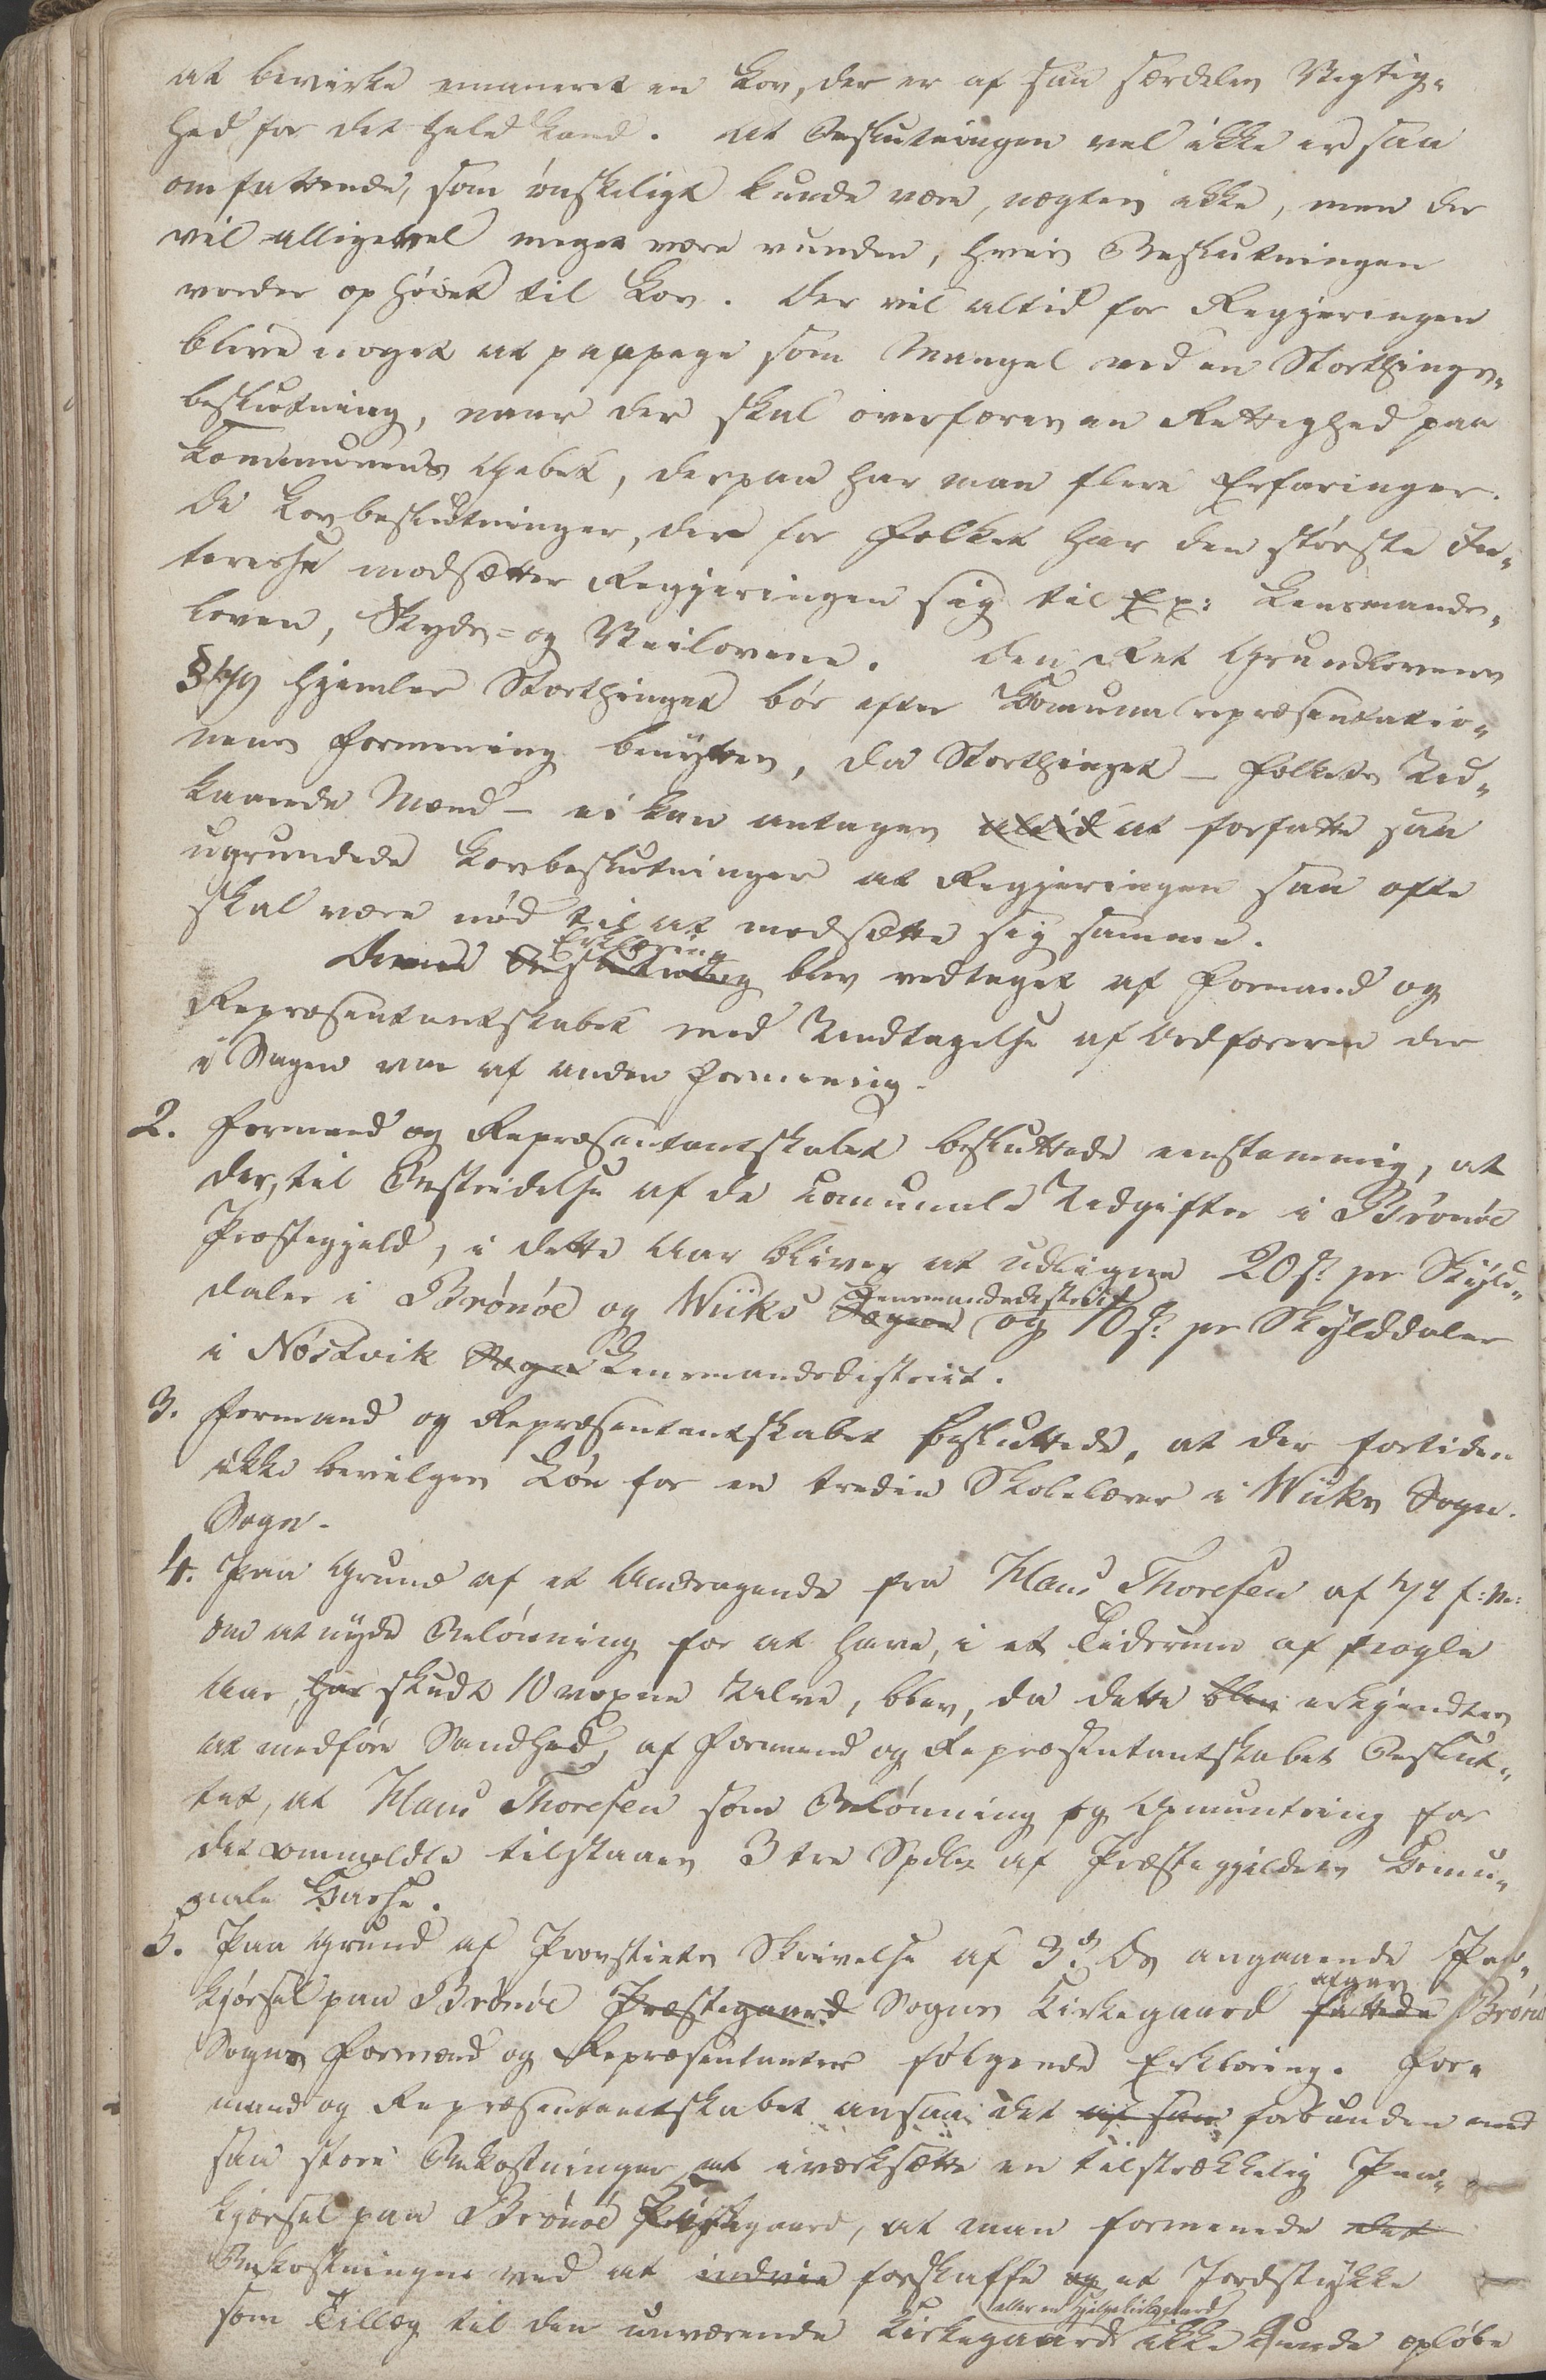 at bevirke emaneret en Lov, der er af saa særdeles Vigtig-
hed for det hele Land. At Beslutningen vel ikke er saa
omfattende, som ønskeligt kunde være, nægtes ikke, men der
vil alligevel meget være vunden, hvis Beslutningen
vorder ophøiet til Lov. Der vil altid for Regjeringen
blive noget at paapege som Mangel ved en Storthings-
beslutning, naar der skal overføres en Rettighed paa
Communens Gebet, derpaa har man flere Erfaringer.
De Lovbeslutninger, der for Folket har den største In-
teresse modsætter Regjeringen sig til Ex: Lensmands-
loven, Skyds- og Veilovene. Den Ret Grundlovens
§ 79 hjemler Storthinget bør efter Communalrepræsentatio-
nens Formening benyttes, da Storthinget - Folkets Ud-
kaarede Mænd - ei kan antages altid at forfatte saa
ugrundede Lovbeslutninger at Regjeringen saa ofte
skal være nød til at modsætte sig samme.
Erklæring
Denne Beslutning blev vedtaget af Formand og
Repræsentantskabet med Undtagelse af Ordføreren der
i Sagen var af anden Formening.
2. Formand og Repræsentantskabet besluttede eenstemmig, at
der, til Bestridelse af de communale Udgifter i Brønøe
Præstegjeld, i dette Aar bliver at udligne 20 s. pr Skyld-
Lensmandsdistrict
daler i Brønöe og Wiiks Sogne og 16 s. pr Skylddaler
i Nöstvik Sogn Lensmandsdistrict.
3. Formand og Repræsentantskabet besluttede, at der fortiden
ikke bevilges Løn for en tredie Skolelærer i Wiiks Sogn.
Sogn.
4. Paa Grund af et Andragende fra Hans Thoresen af 7/4 f: M:
om at nyde Belønning for at have, i et Tidsrum af nogle
Aar har skudt 10 voxne Ulve, blev, da dette blev erkjendtes
at medføre Sandhed, af Formand og Repræsentantskabet Beslut-
tet, at Hans Thoresen som Belønning og Opmuntring for
det ommeldte tilstaaes 3 tre Spdlr af Præstegjeldets Commu-
nale Kasse.
5. Paa Grund af Provstiets Skrivelse af 3d Ds angaaende Paa-
afgav
kjørsel paa Brønöe Præstegaard Sogns Kirkegaard fattede Brönö
Sogns Formænd og Repræsentanter følgende Erklæring. For-
mand og Repræsentantskabet ansaae det at saa forbunden med
saa store Bekostninger at iværksætte en tilstrækkelig Paa-
kjørsel paa Brønöe Kirkegaard, at man formenede det
Bekostningen ved at indvie forskaffe og et Jordstykke
eller en Hjelpekirkegaard
som Tillæg til den nuværende Kirkegaard ikke kunde opløbe